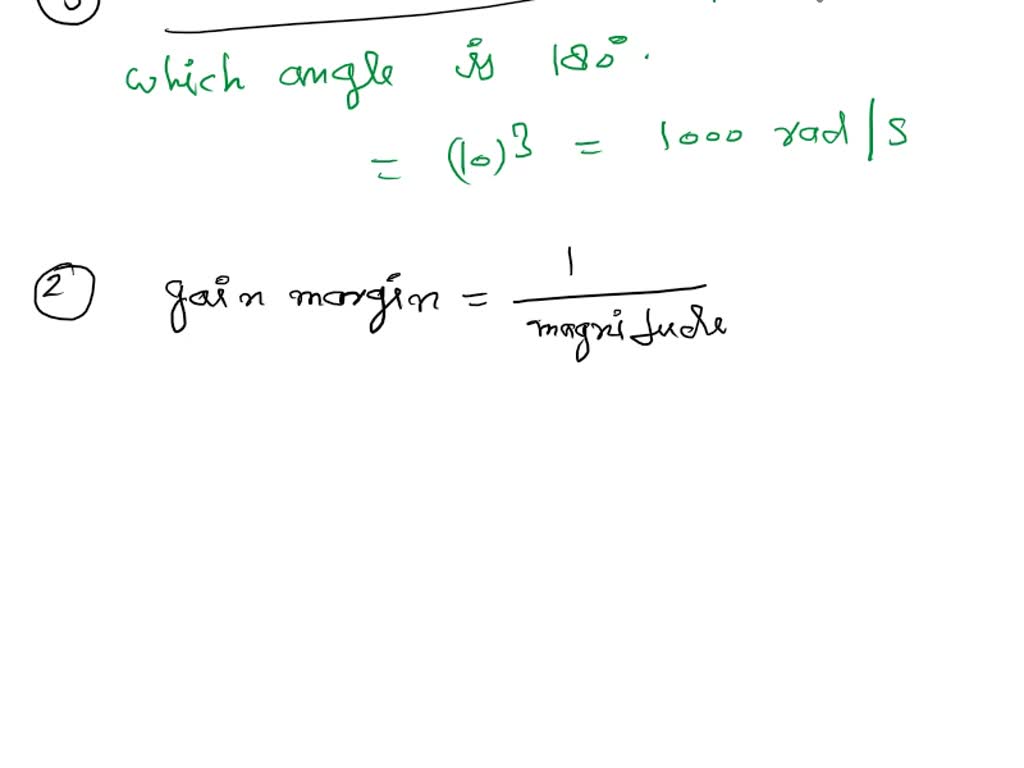 which angle is 180°.
= (10)^3 = 1000 rad/s
2 gain margin = 1 / magnitude